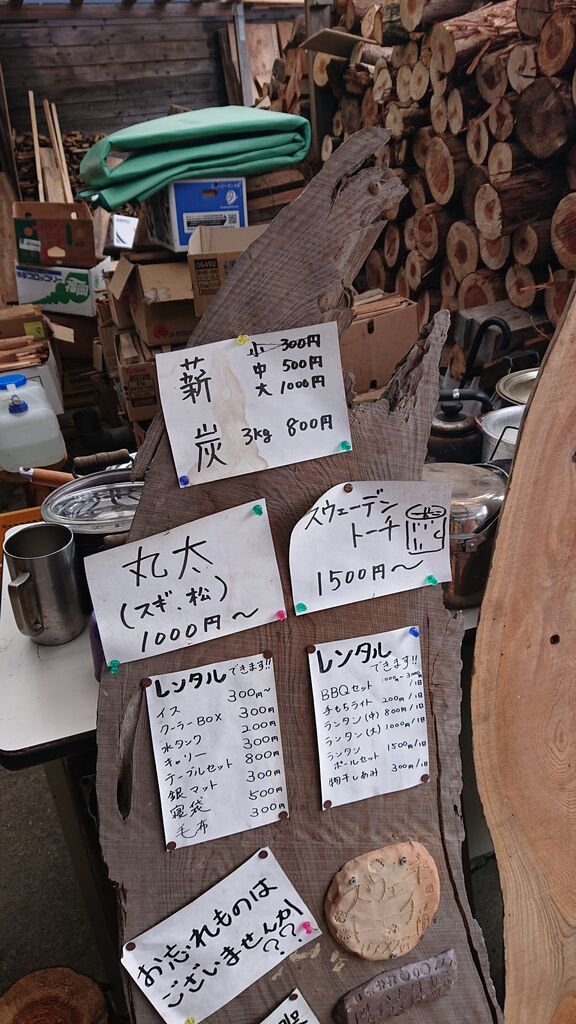 薪 小 300円
中 500円
大 1000円
炭 3kg 800円
スウェーデン
トーチ
1500円～
丸太
(スギ、松)
1000円～
レンタル
できます!!
イス 300円～
クーラーBOX 300円
水タンク 200円
キャリー 300円
テーブルセット 800円
銀マット 300円
寝袋 500円
毛布 300円
レンタル
できます!!
BBQセット
手もちライト 200円/1日
ランタン(中) 800円/1日
ランタン(大) 1000円/1日
ランタン
ポールセット 1500円/1日
物干しあみ 300円/1日
お忘れものは
ございませんか
??
06492
20126